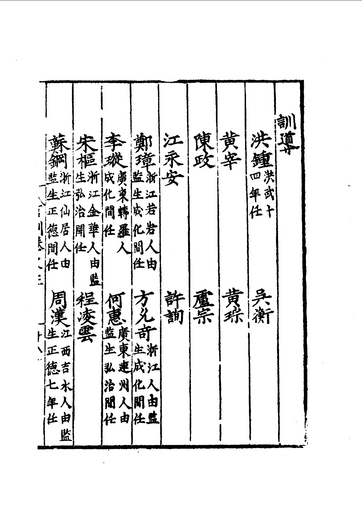 訓導
洪鍾 洪武十四年任 吳衡
黃宰 黃琛
陳政 盧宗
江永安 許詢
鄭璋 浙江 人由監生成化間任 方允奇 浙江 人由監生成化間任
李璇 廣東 羅人成化間任 何惠 廣東連州人由監生弘治間任
宋樞 浙江金華人由監生弘治間任 程凌雲
蘇鋼 浙江仙居人由監生正德間任 周漢 江西吉水人由監生正德七年任